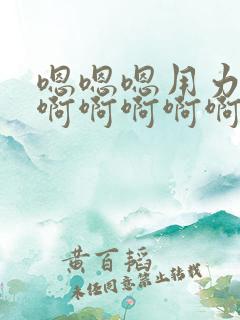 嗯嗯嗯用力
啊啊啊啊啊
黄百韬
未经同意禁止转载